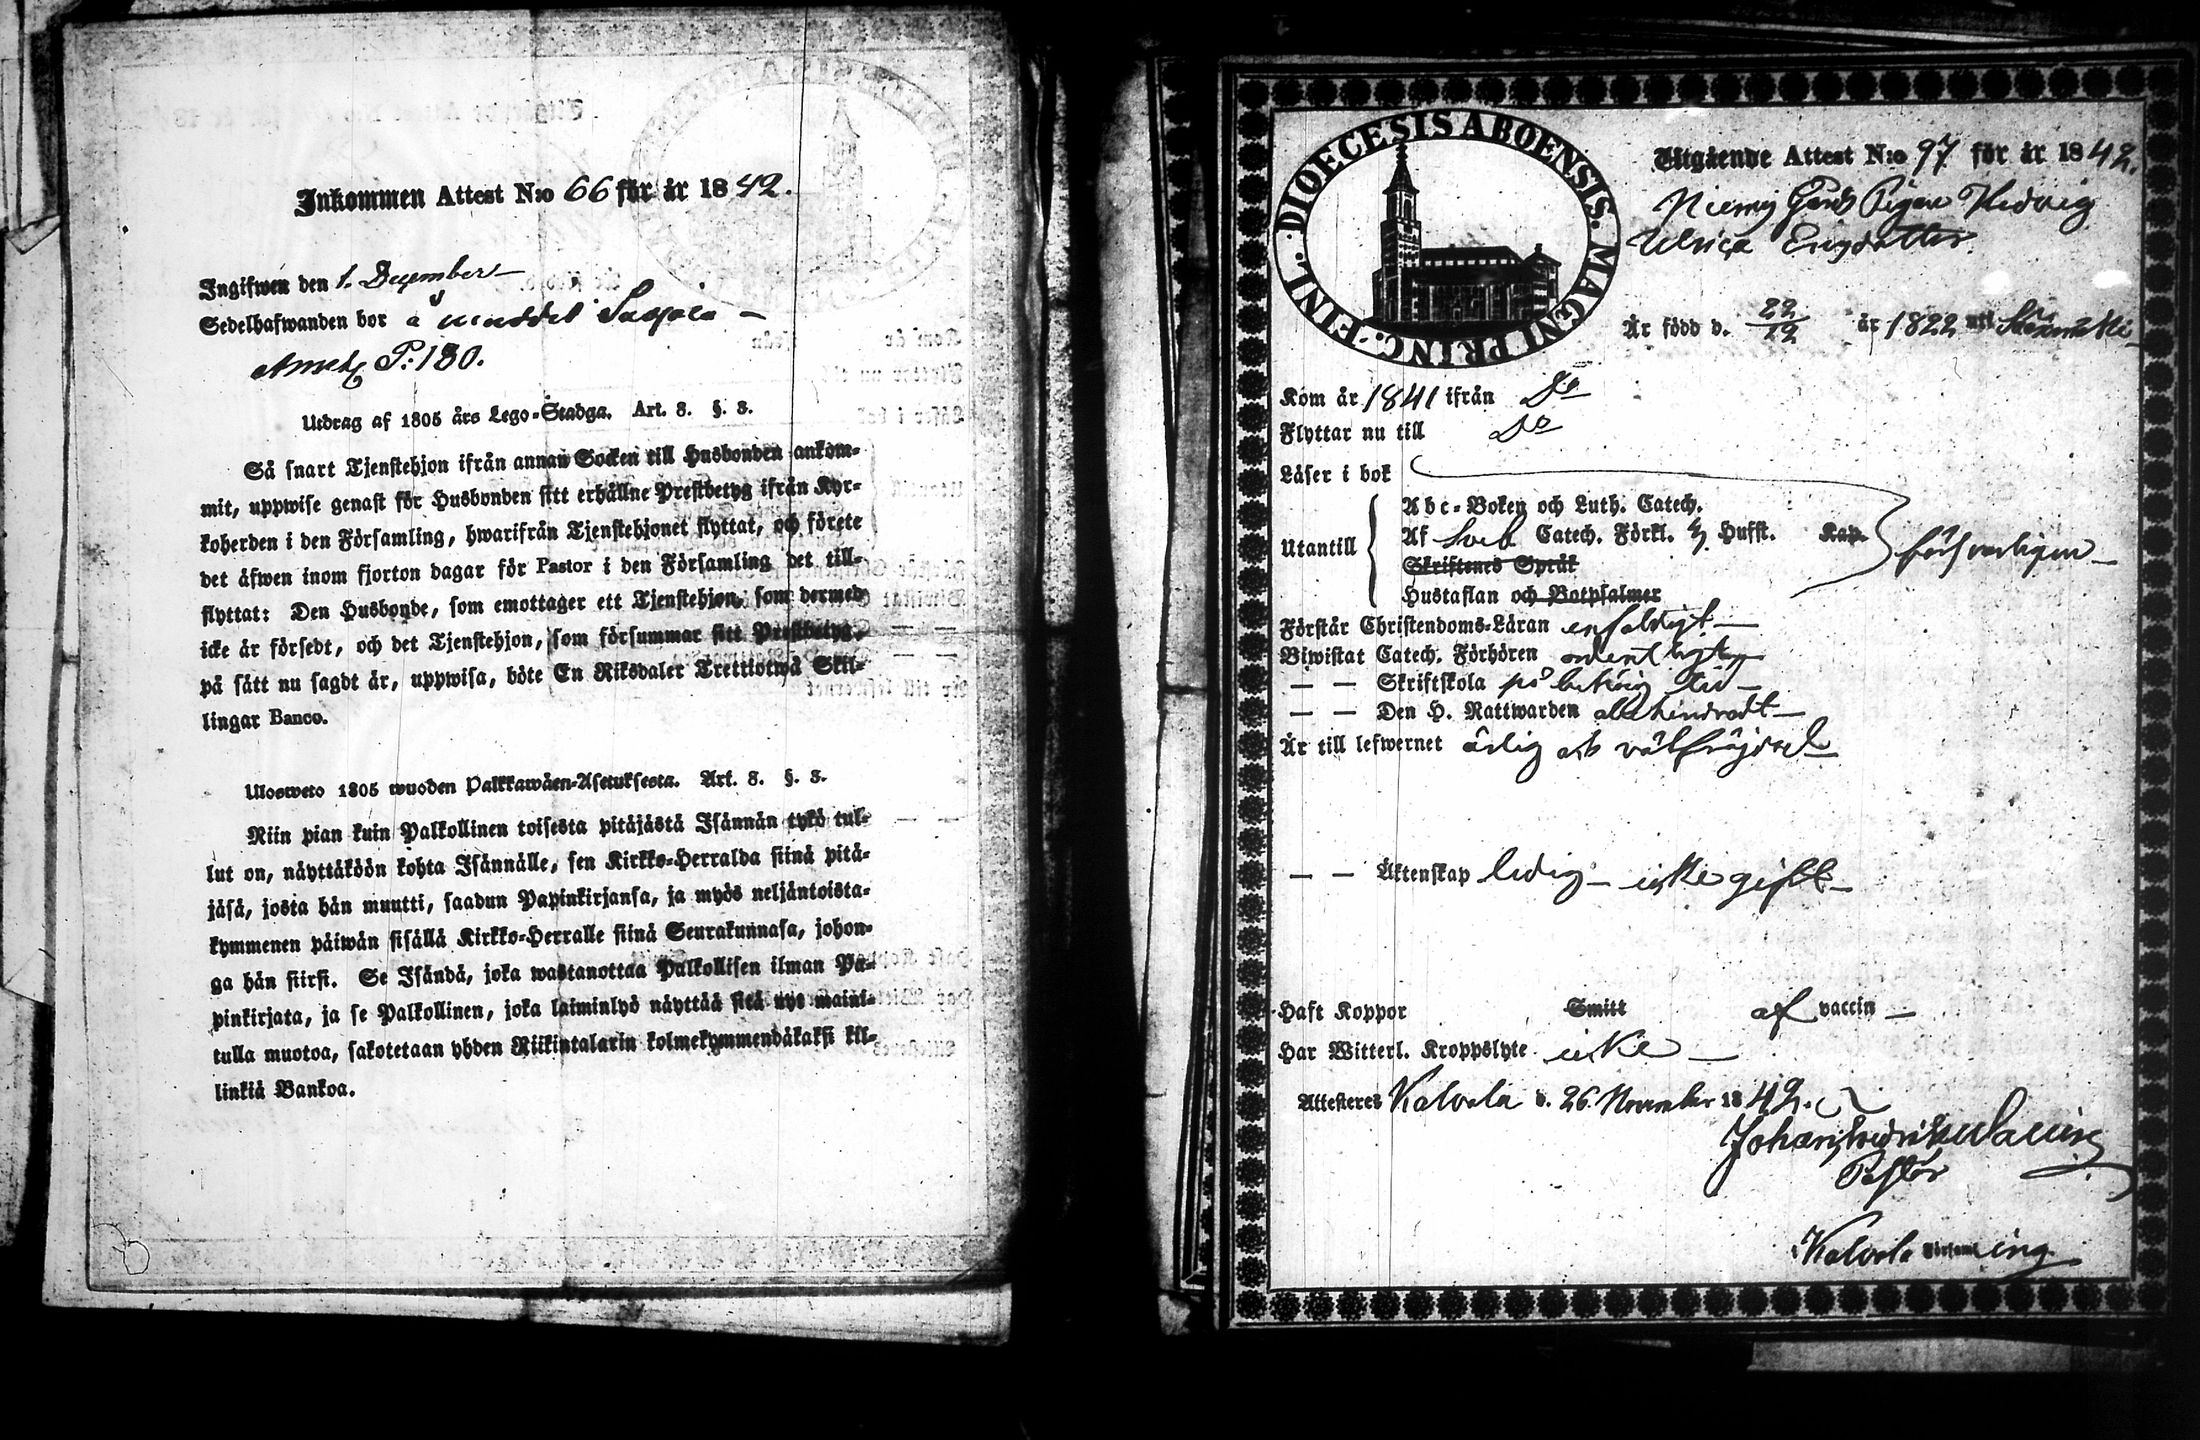 Inkommen Attest N:o 66 för år 1842.
Ingifwen den 1. December
Sedelhafwanden bor å
P: 180.
Utdrag af 1805 års Lego-Stadga. Art. 8. §. 3.
Så snart Tjenstehjon ifrån annan Socken till Husbonden ankom-
mit, uppwise genast för Husbonden sitt erhållne Prestbetyg ifrån Kyr-
koherden i den Församling, hwarifrån Tjenstehjonet flyttat, och förete
det äfwen inom fjorton dagar för Pastor i den Församling det till-
flyttat: Den Husbonde, som emottager ett Tjenstehjon, som dermed
icke är försedt, och det Tjenstehjon, som försummar sitt Prestbetyg,
på sätt nu sagdt är, uppwisa, böte En Riksdaler Trettiotwå Skil-
lingar Banco.
Ulosweto 1805 wuoden Palkkawäen-Asetuksesta. Art. 8. §. 3.
Niin pian kuin Palkollinen toisesta pitäjästä Isännän tykö tul-
lut on, näyttäköön kohta Isännälle, sen Kirkko-Herralda siinä pitä-
jäsä, josta hän muutti, saadun Papinkirjansa, ja myös neljäntoista-
kymmenen päiwän sisällä Kirkko-Herralle siinä Seurakunnasa, johon-
ga hän siirsi. Se Isändä, joka wastanottaa Palkollisen ilman Pa-
pinkirjata, ja se Palkollinen, joka laiminlyö näyttää sitä nyt maini-
tulla muotoa, sakotetaan yhden Riikintalarin kolmekymmendäkaksi kil-
linkiä Bankoa.
DIOECESIS ABOENSIS. MAGNI PRINC. FINL.
Utgående Attest N:o 97 för år 1842.
Niemis Pigan Hedvig
Ulrica Ericsdotter
Är född d. 22/12 år 1822 uti
Kom år 1841 ifrån Do
Flyttar nu till Do
Läser i bok
Utantill
Abc-Boken och Luth. Catech.
Af Sveb Catech. Förkl. Hufst. Kap.
Skriftenes Språk
Hustaflan och Botpsalmer
försvarligen
Förstår Christendoms-Läran enfaldigt
Biwistat Catech. Förhören ordentligt
— — Skriftskola på behörig tid
— — Den H. Nattwarden obehindradt
Är till lefwernet ärlig och välfräjdad
— — Äktenskap ledig icke gift
Haft Koppor Smitt af vaccin
Har Witterl. Kroppslyte icke
Attesteras Kalvola d. 26. November 1842.
Johan Fredrik
Pastor
i Kalvola Församling